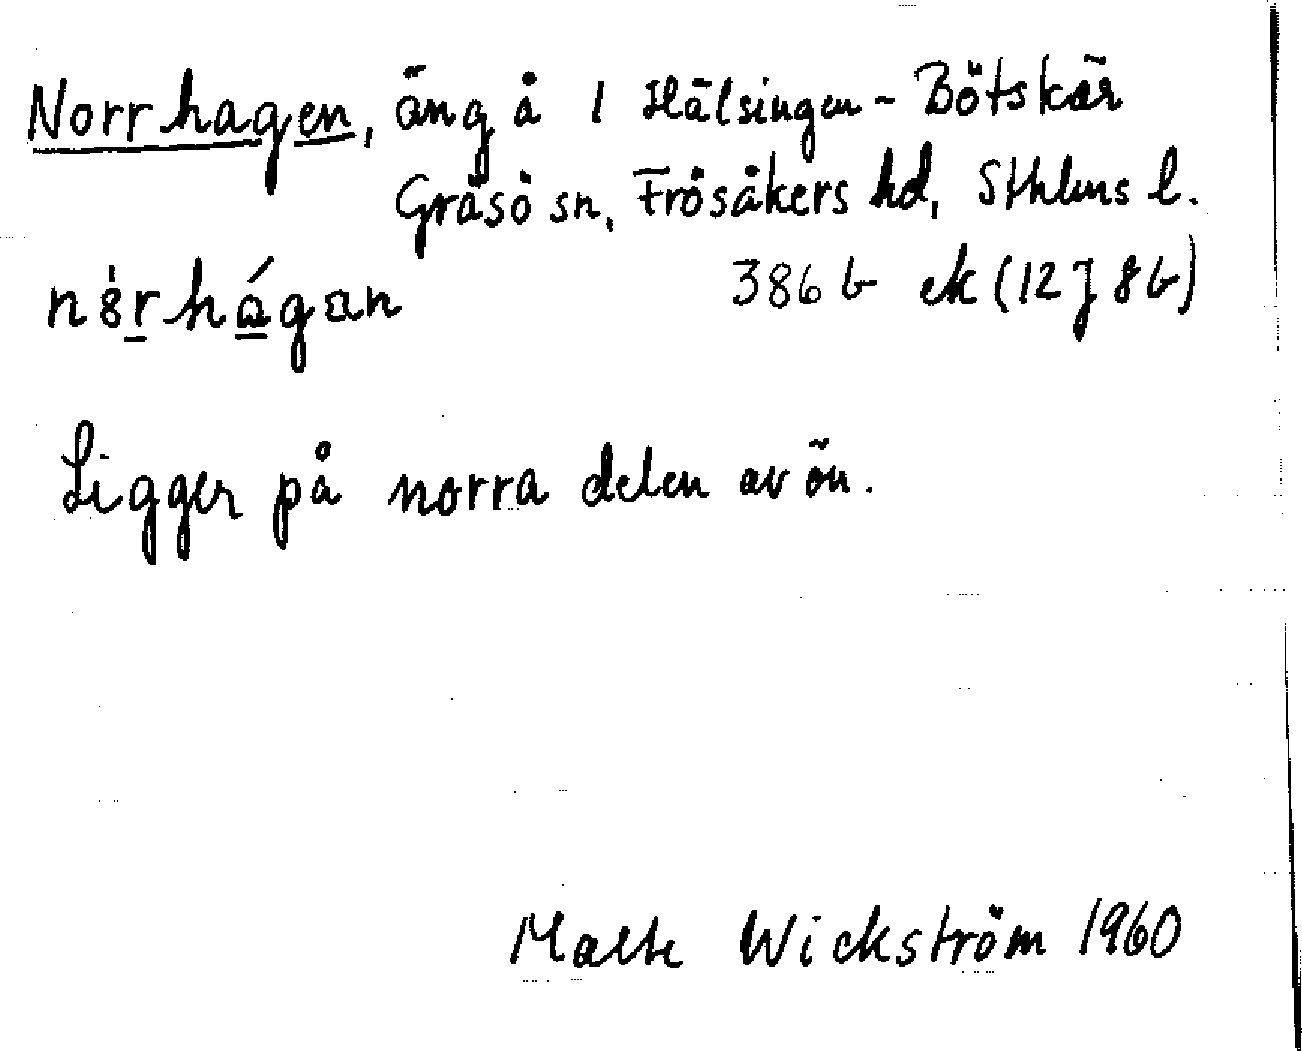 Norrhagen, äng å 1 Hälsingen-Bötskär
Gräsö sn, Frösåkers hd, Sthlms l.
386 b ek (12 J 8 b)
Ligger på norra delen av ön.
Malte Wickström 1960